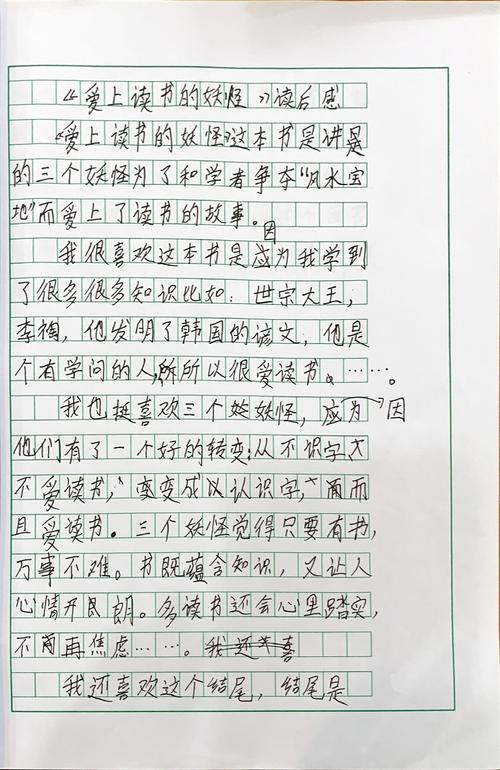 《爱上读书的妖怪》读后感
《爱上读书的妖怪》这本书是讲是
的三个妖怪为了和学者争夺“风水宝
地”而爱上了读书的故事。
因
我很喜欢这本书是应为我学到
了很多很多知识比如：世宗大王，
李祹，他发明了韩国的谚文，他是
个有学问的人，所所以很爱读书、……。
我也挺喜欢三个妖妖怪，应为因
他们有了一个好的转变：从不识字
不爱读书，变变成以认识字，而而
且爱读书。三个妖怪觉得只要有书，
万事不难。书既蕴含知识，又让人
心情开朗。多读书还会心里踏实，
不再焦虑……。我还喜
我还喜欢这个结尾，结尾是